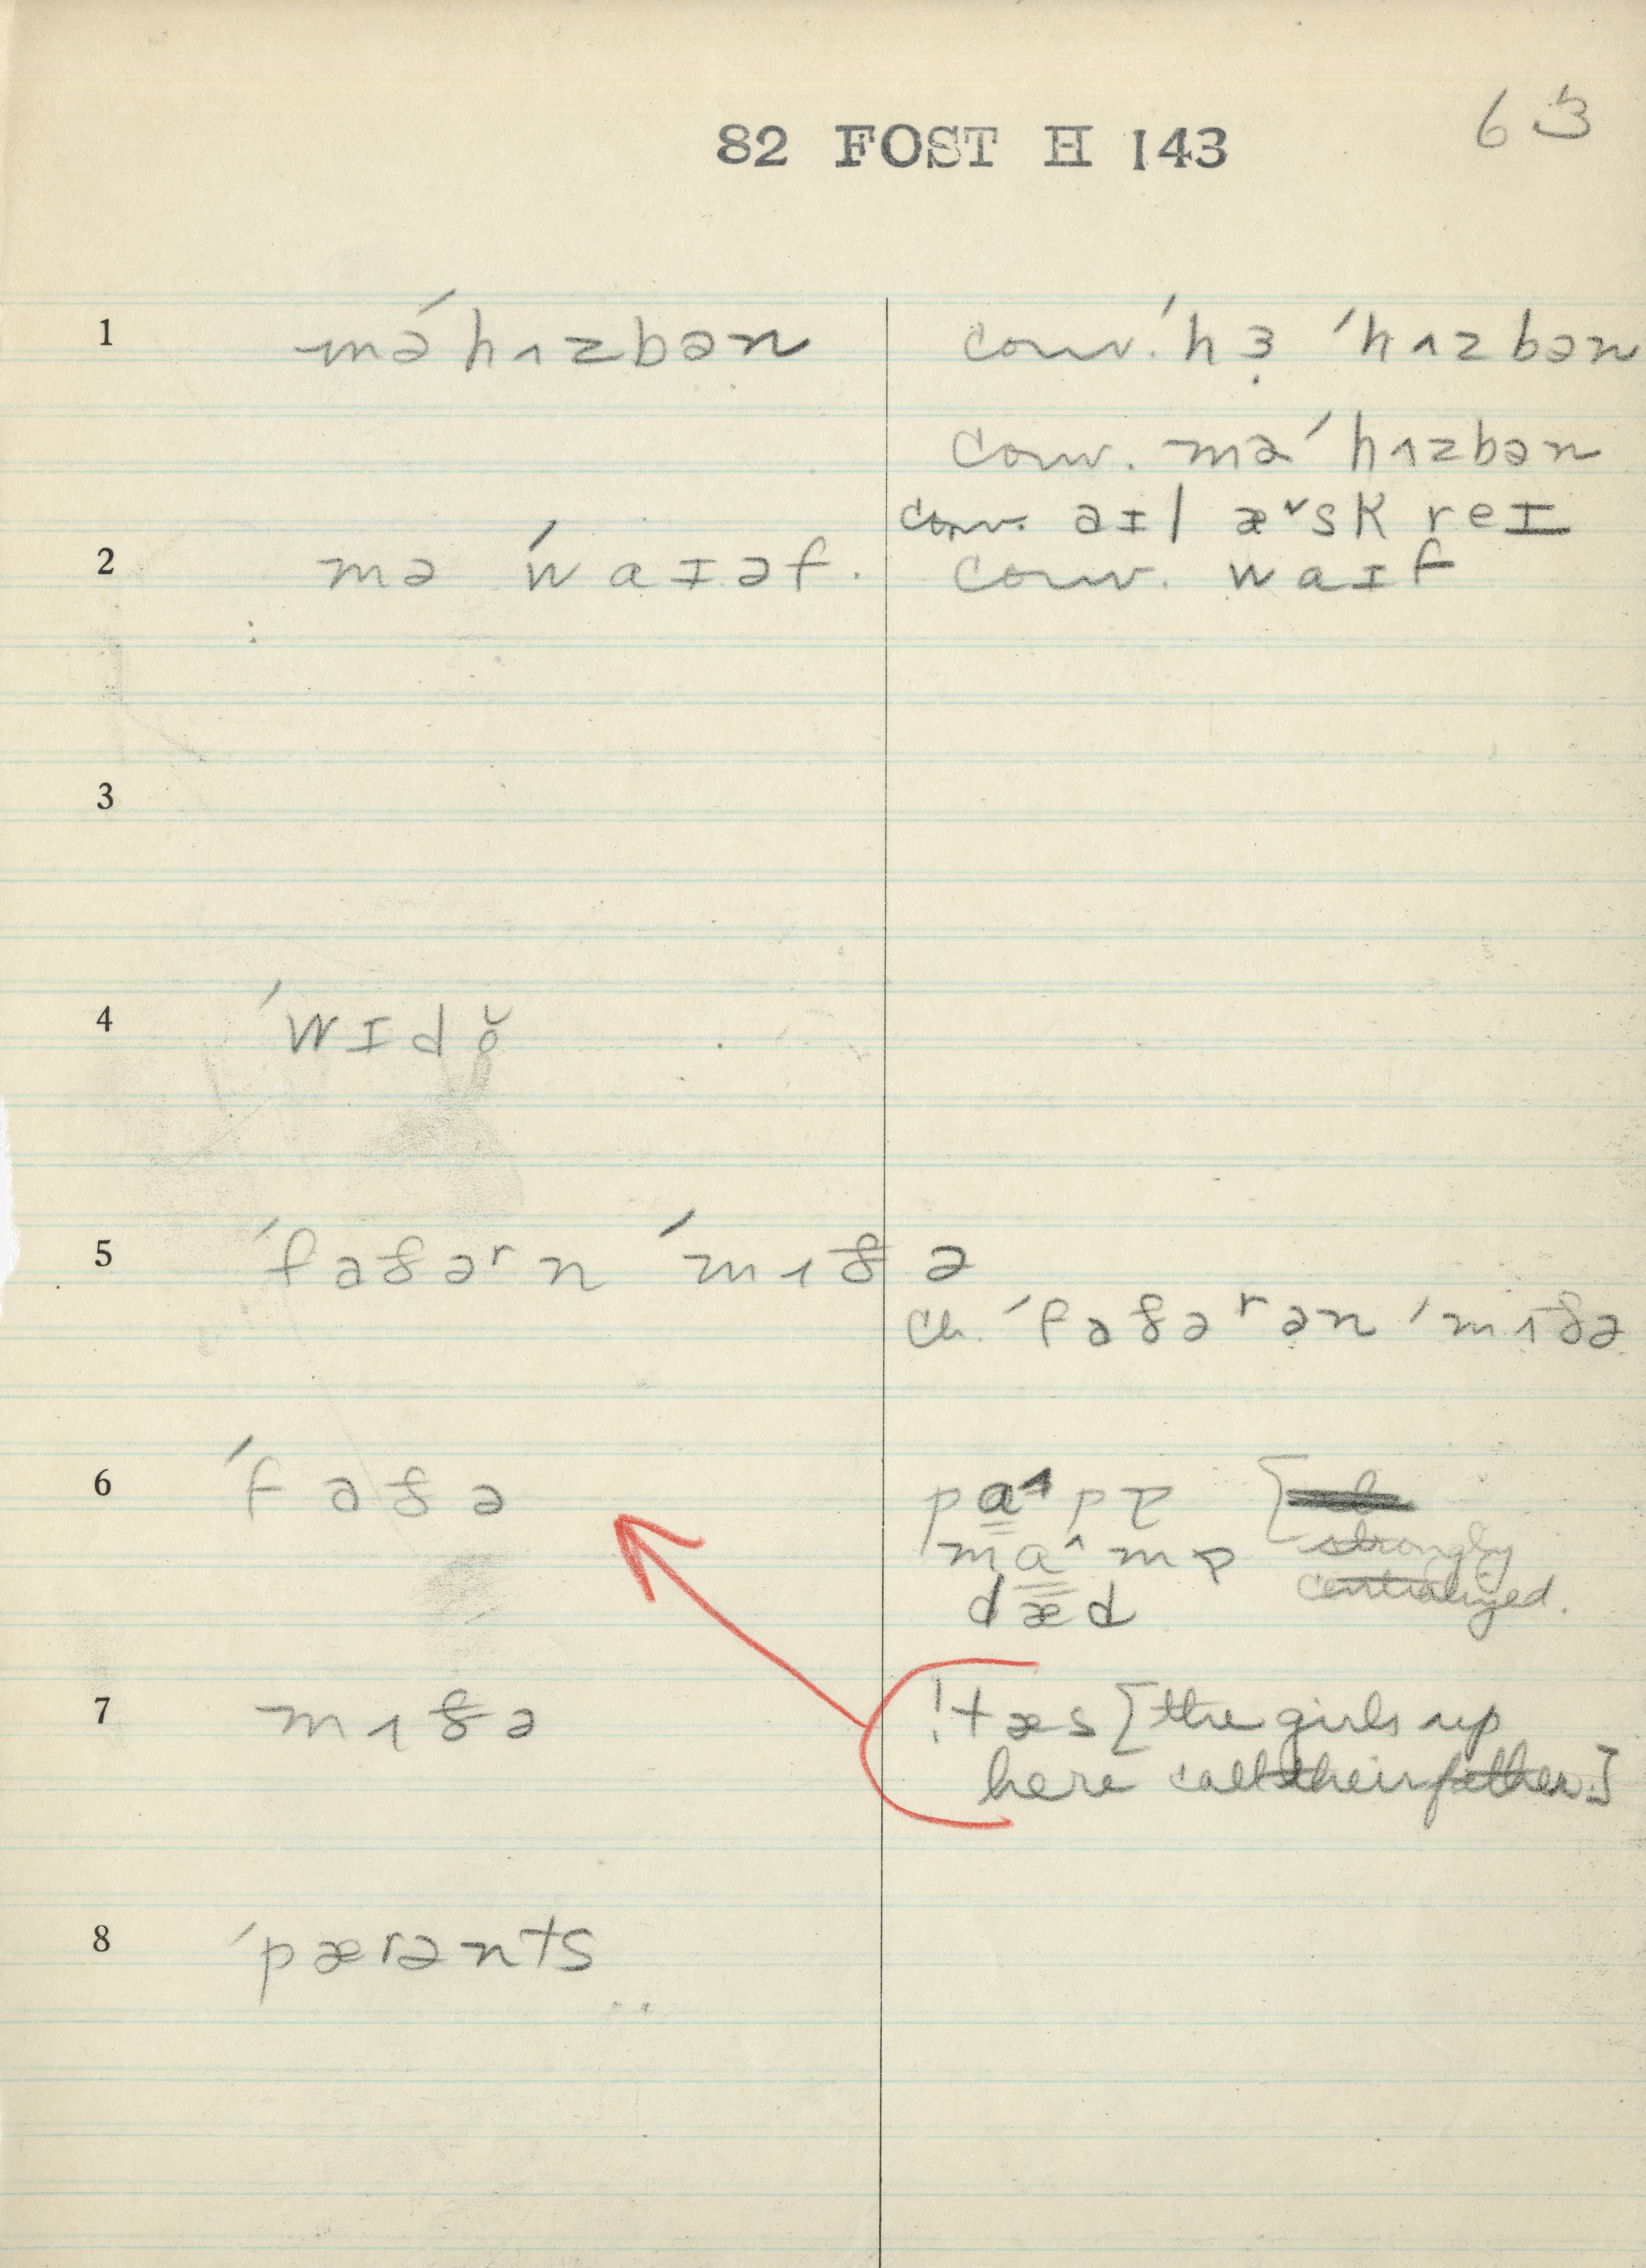 82 FOST H 143
63
1 mə ˈhɿzbən conv. ˈhɜ̣ ˈhɿzbən
conv. mə ˈhɿzbən
conv. aɪl æ˅sk reɪ
2 mə ˈwaɪəf. conv. waɪf
3
4 ˈwɪdŏ
5 ˈfaðəʳn ˈmɿðə
ch. ˈfaðəʳən ˈmɿðə
6 ˈfaðə
strongly
centralized.
dæd
7 mɿðə !tæs [the girls up
here call their father.]
8 ˈpærənts